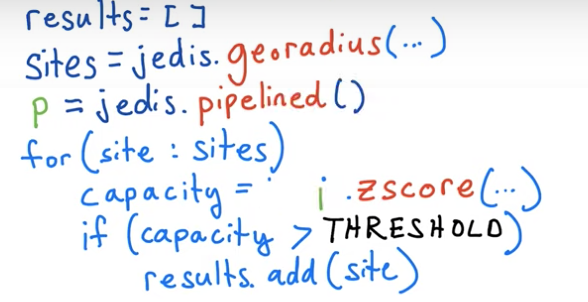 results = [ ]
sites = jedis.georadius(...)
p = jedis.pipelined()
for (site : sites)
capacity = .zscore(...)
if (capacity > THRESHOLD)
results.add(site)